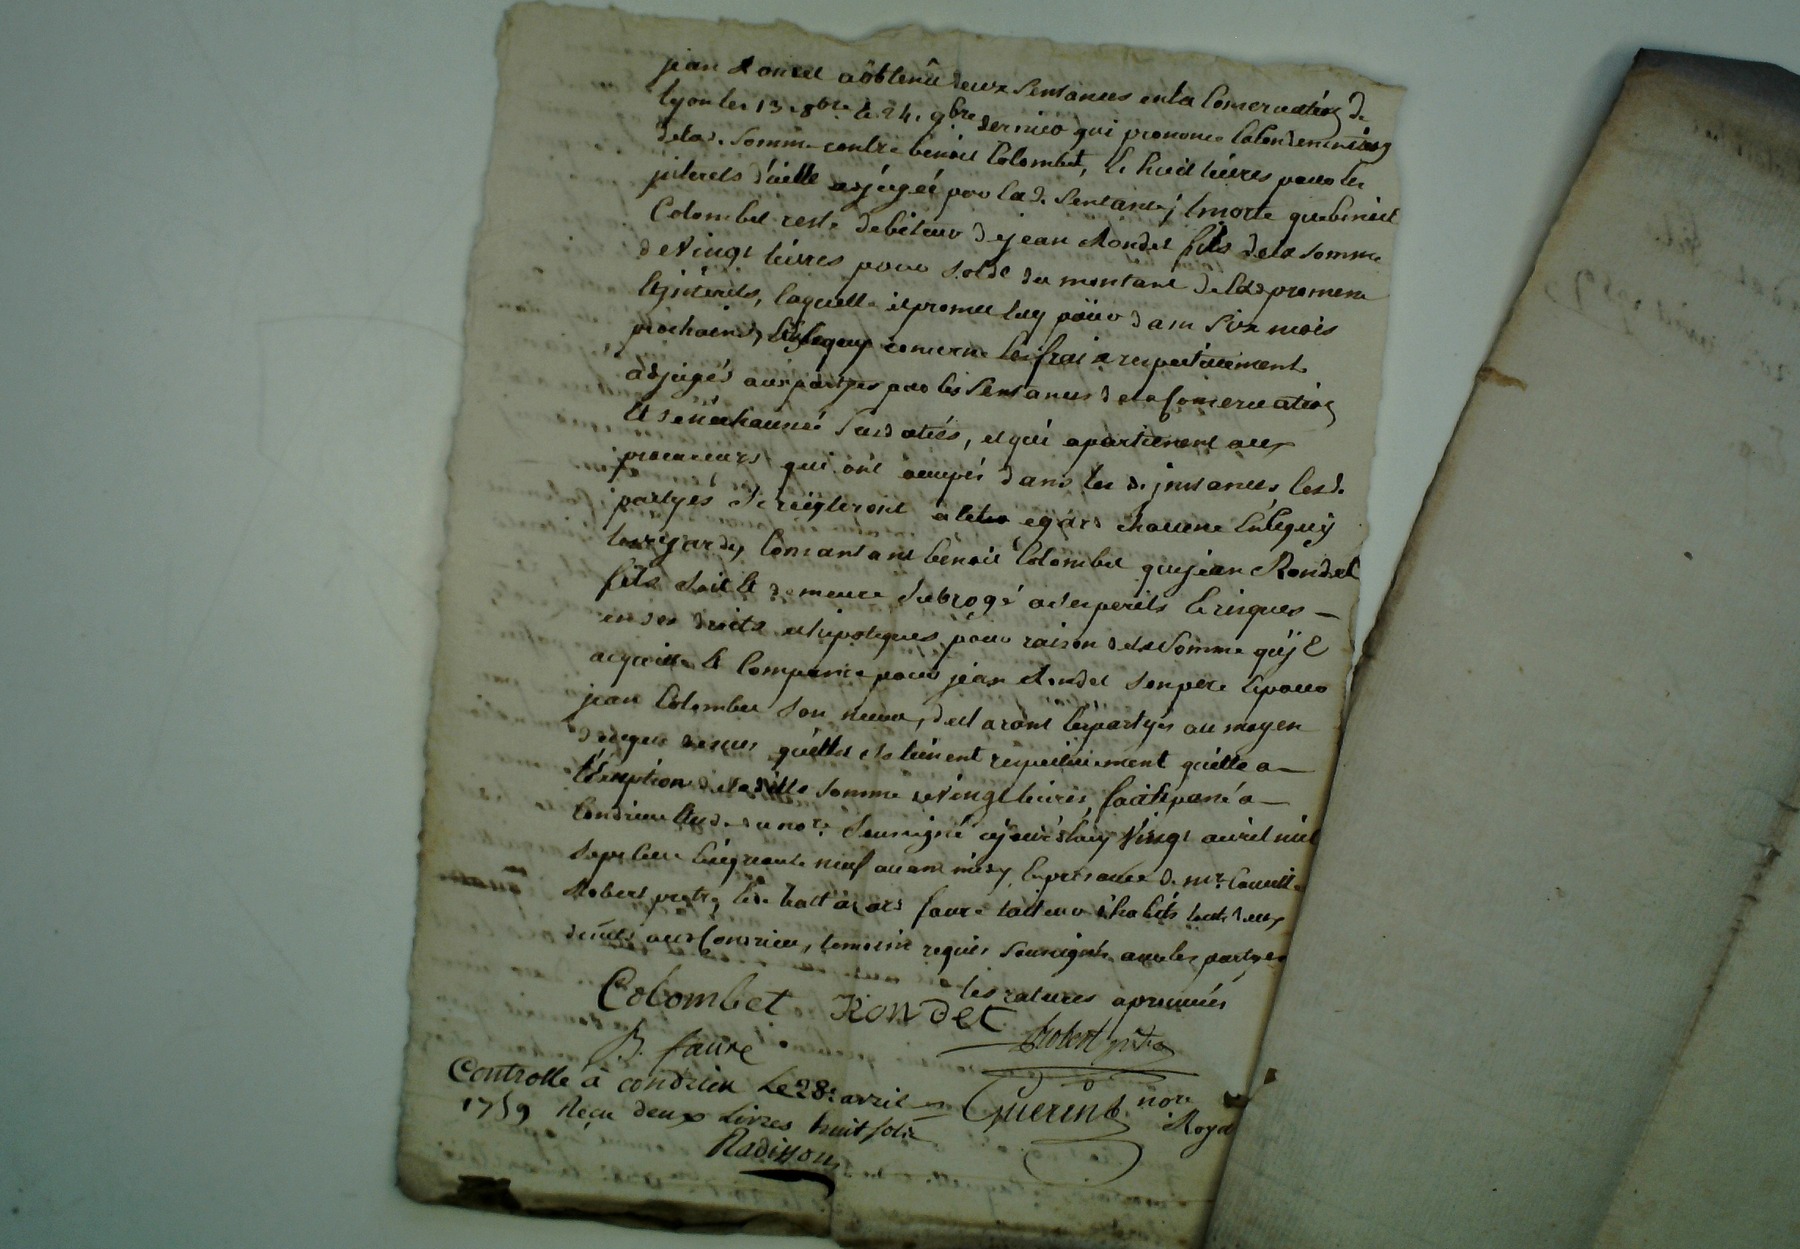 jean Rondet a obtenu deux Sentances en la Conservation de
Lyon les 13. 8bre & 24. 9bre dernier qui prononce la Condemnation
de lad. Somme contre benoit Colombet, & huit livres pour les
interets d'icelle adjugée par lad. Sentance; Emorte que benoit
Colombet reste debiteur de jean Rondet fils de la somme
de Vingt livres pour solde du montant de lad. promesse
& interets, laquelle il promet luy païer dans Six mois
prochains, & a l'egard concerne les frais respectivement
adjugés aux partyes par les Sentances de la Conservation
& Senechaussé Susdatés, et qui apartienent aux
procureurs qui ont occupés dans les d. jnstances, les d.
partyes Se reigleront a leur egard chacune En ce qui
les regarde, Consantant benoit Colombet que jean Rondet
fils Soit & demeure Subrogé a Ses perils & risques
en ses droits et hipoteques pour raison de la Somme qu'il
acquitte & Compense pour jean Rondet Son pere & pour
jean Colombet Son neveu, declarant les partyes au moyen
de ce que dessus qu'elles se tiennent respectivement quitte a
l'exeption de la dite Somme de Vingt livres, fait & passé a
Condrieu Etude du nore. Soussigné cejourd'huy Vingt avril mil
Sept cent Cinquante neuf avant midy, En presance de mr. Camille
Robert pretre, & de baltazard faure tailleur d'habits tout deux
de aud. Condrieu, temoins requis Soussignés avec les partyes
les ratures aprouvées
Colombet Rondet
B. faure Robert ptre
Controllé à condrieu Le 28e avril Guerin nore
1759 Reçu deux Livres huit sols Royal
Radisson